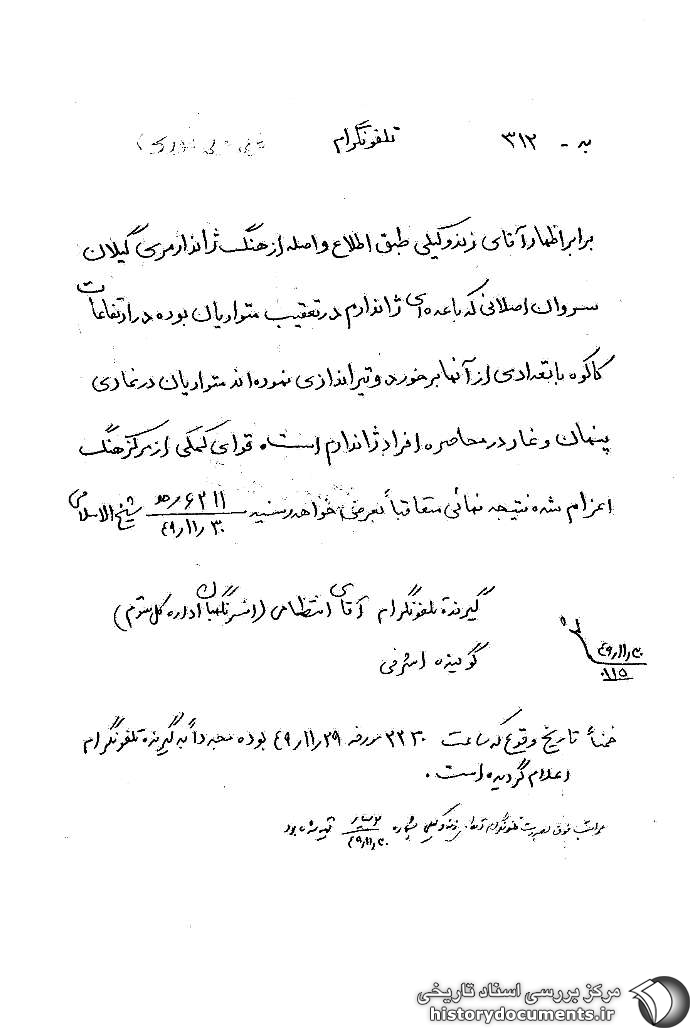 به - ۳۱۲ تلفونگرام
برابر اظهار آقای زندوکیلی طبق اطلاع واصله از هنگ ژاندارمری گیلان
سروان اصلانی که با عده‌ای ژاندارم در تعقیب متواریان بوده در ارتفاعات
کاکوه با تعدادی از آنها برخورد و تیراندازی نموده‌اند متواریان در غاری
پنهان و غار در محاصره افراد ژاندارم است. قوای کمکی از مرکز هنگ
اعزام شده نتیجه نهائی متعاقباً بعرض خواهد رسید شیخ الاسلامی
۶۲۱۱
۴۹/۱۱/۳۰
گیرنده تلفونگرام آقای انتظامی (افسر نگهبان اداره کل سوم)
گوینده اشرفی
۴۹/۱۱/۳۰
ضمناً تاریخ وقوع که ساعت ۲۲۳۰ مورخه ۴۹/۱۱/۲۹ بوده مجدداً به گیرنده تلفونگرام
اعلام گردیده است.
مراتب فوق بصورت تلفونگرام آقای زندوکیلی بشماره
۴۹/۱۱/۳۰
مرکز بررسی اسناد تاریخی
historydocuments.ir